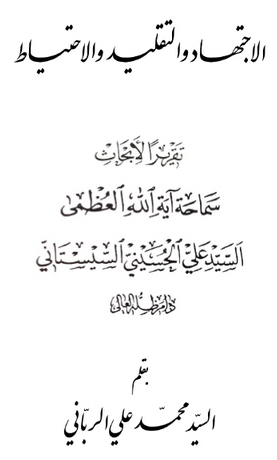 الاجتهاد والتقليد والاحتياط
تقريرًا لأبحاث
سماحة آية الله العظمى
السيد علي الحسيني السيستاني
دام ظله العالي
بقلم
السيّد محمّد علي الربّاني